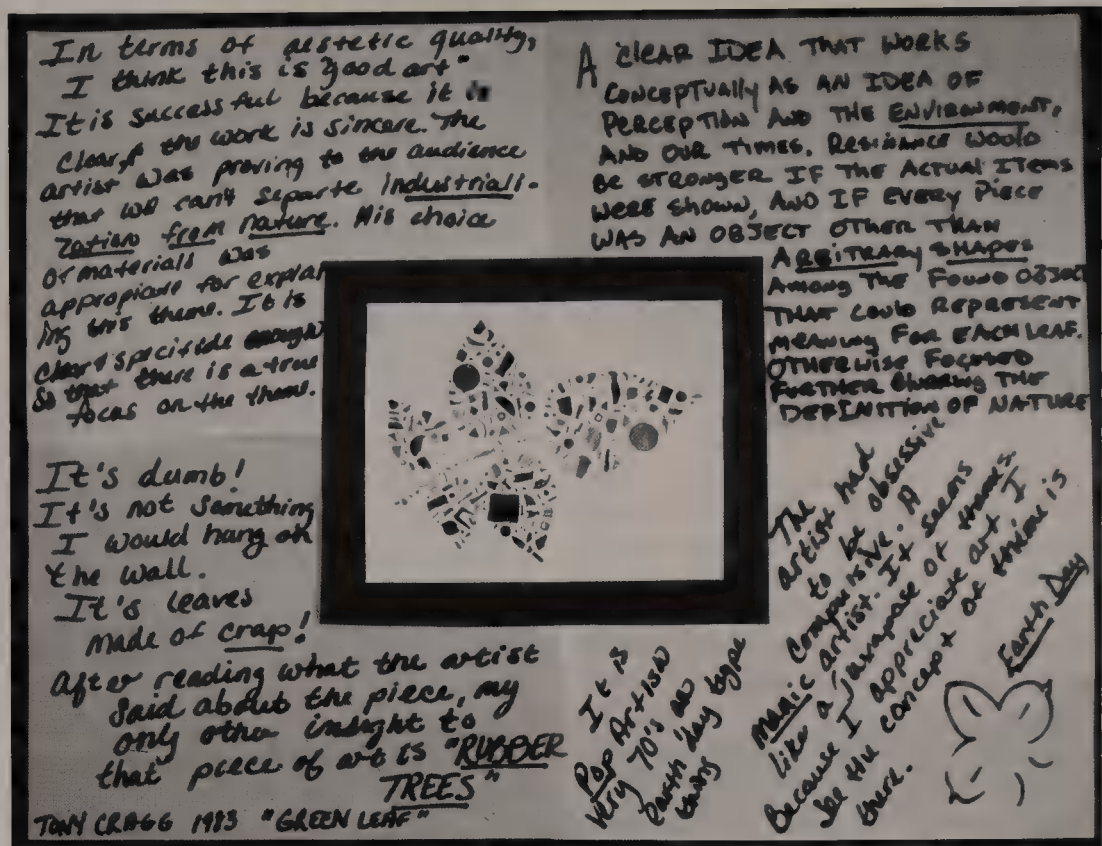 In terms of aestetic quality,
I think this is good art"
It is successful because it is
clear, & the work is sincere. The
artist was proving to the audience
that we can't separte industriali-
zation from nature. His choice
of materials was
appropiate for explain
ing this theme. It is
clear & specific enough
so that there is a true
focus on the theme.
A CLEAR IDEA THAT WORKS
CONCEPTUALLY AS AN IDEA OF
PERCEPTION AND THE ENVIRONMENT,
AND OUR TIMES. RESINANCE WOULD
BE STRONGER IF THE ACTUAL ITEMS
WERE SHOWN, AND IF EVERY PIECE
WAS AN OBJECT OTHER THAN
ARBITRARY SHAPES
AMONG THE FOUND OBJECT
THAT COULD REPRESENT
MEANING FOR EACH LEAF.
OTHERWISE FOCUSED
FURTHER THE
DEFINITION OF NATURE
It's dumb!
It's not something
I would hang on
the wall.
It's leaves
made of crap!
After reading what the artist
said about the piece, my
only other insight to
that piece of art is "RUBBER
TREES"
TONY CRAGG 1983 "GREEN LEAF"
It is
Pop Artish
Very 70's an
Earth day type
thing
The
artist had
to be obsessive
compulsive. A
manic artist. It seems
like a of themes.
Because I appreciate art I
see the concept of theme is
there.
Earth Day